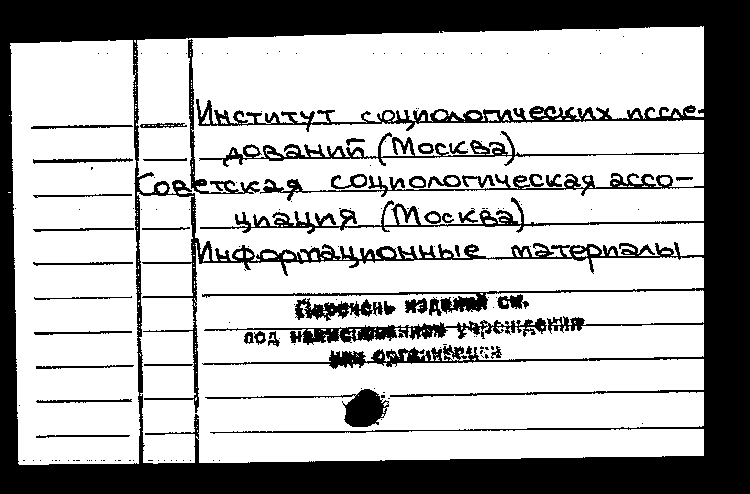 Институт социологических иссле-
дований (Москва).
Советская социологическая ассо-
циация (Москва).
Информационные материалы
Перечень изданий см.
под наименованием учреждения
или организации